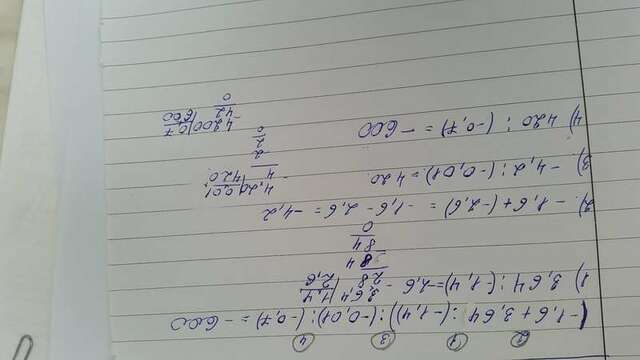 2 1 3 4
(-1,6 + 3,64 : (-1,4)) : (-0,01) : (-0,7) = - 600
1) 3,64 : (-1,4) = -2,6
3,64 | 1,4
28 | 2,6
84
84
0
2) -1,6 + (-2,6) = -1,6 - 2,6 = -4,2
3) -4,2 : (-0,01) = 420
4,20 | 0,01
4 | 420
2
2
0
4) 420 : (-0,7) = - 600
4200 | 0,7
42 | 600
0